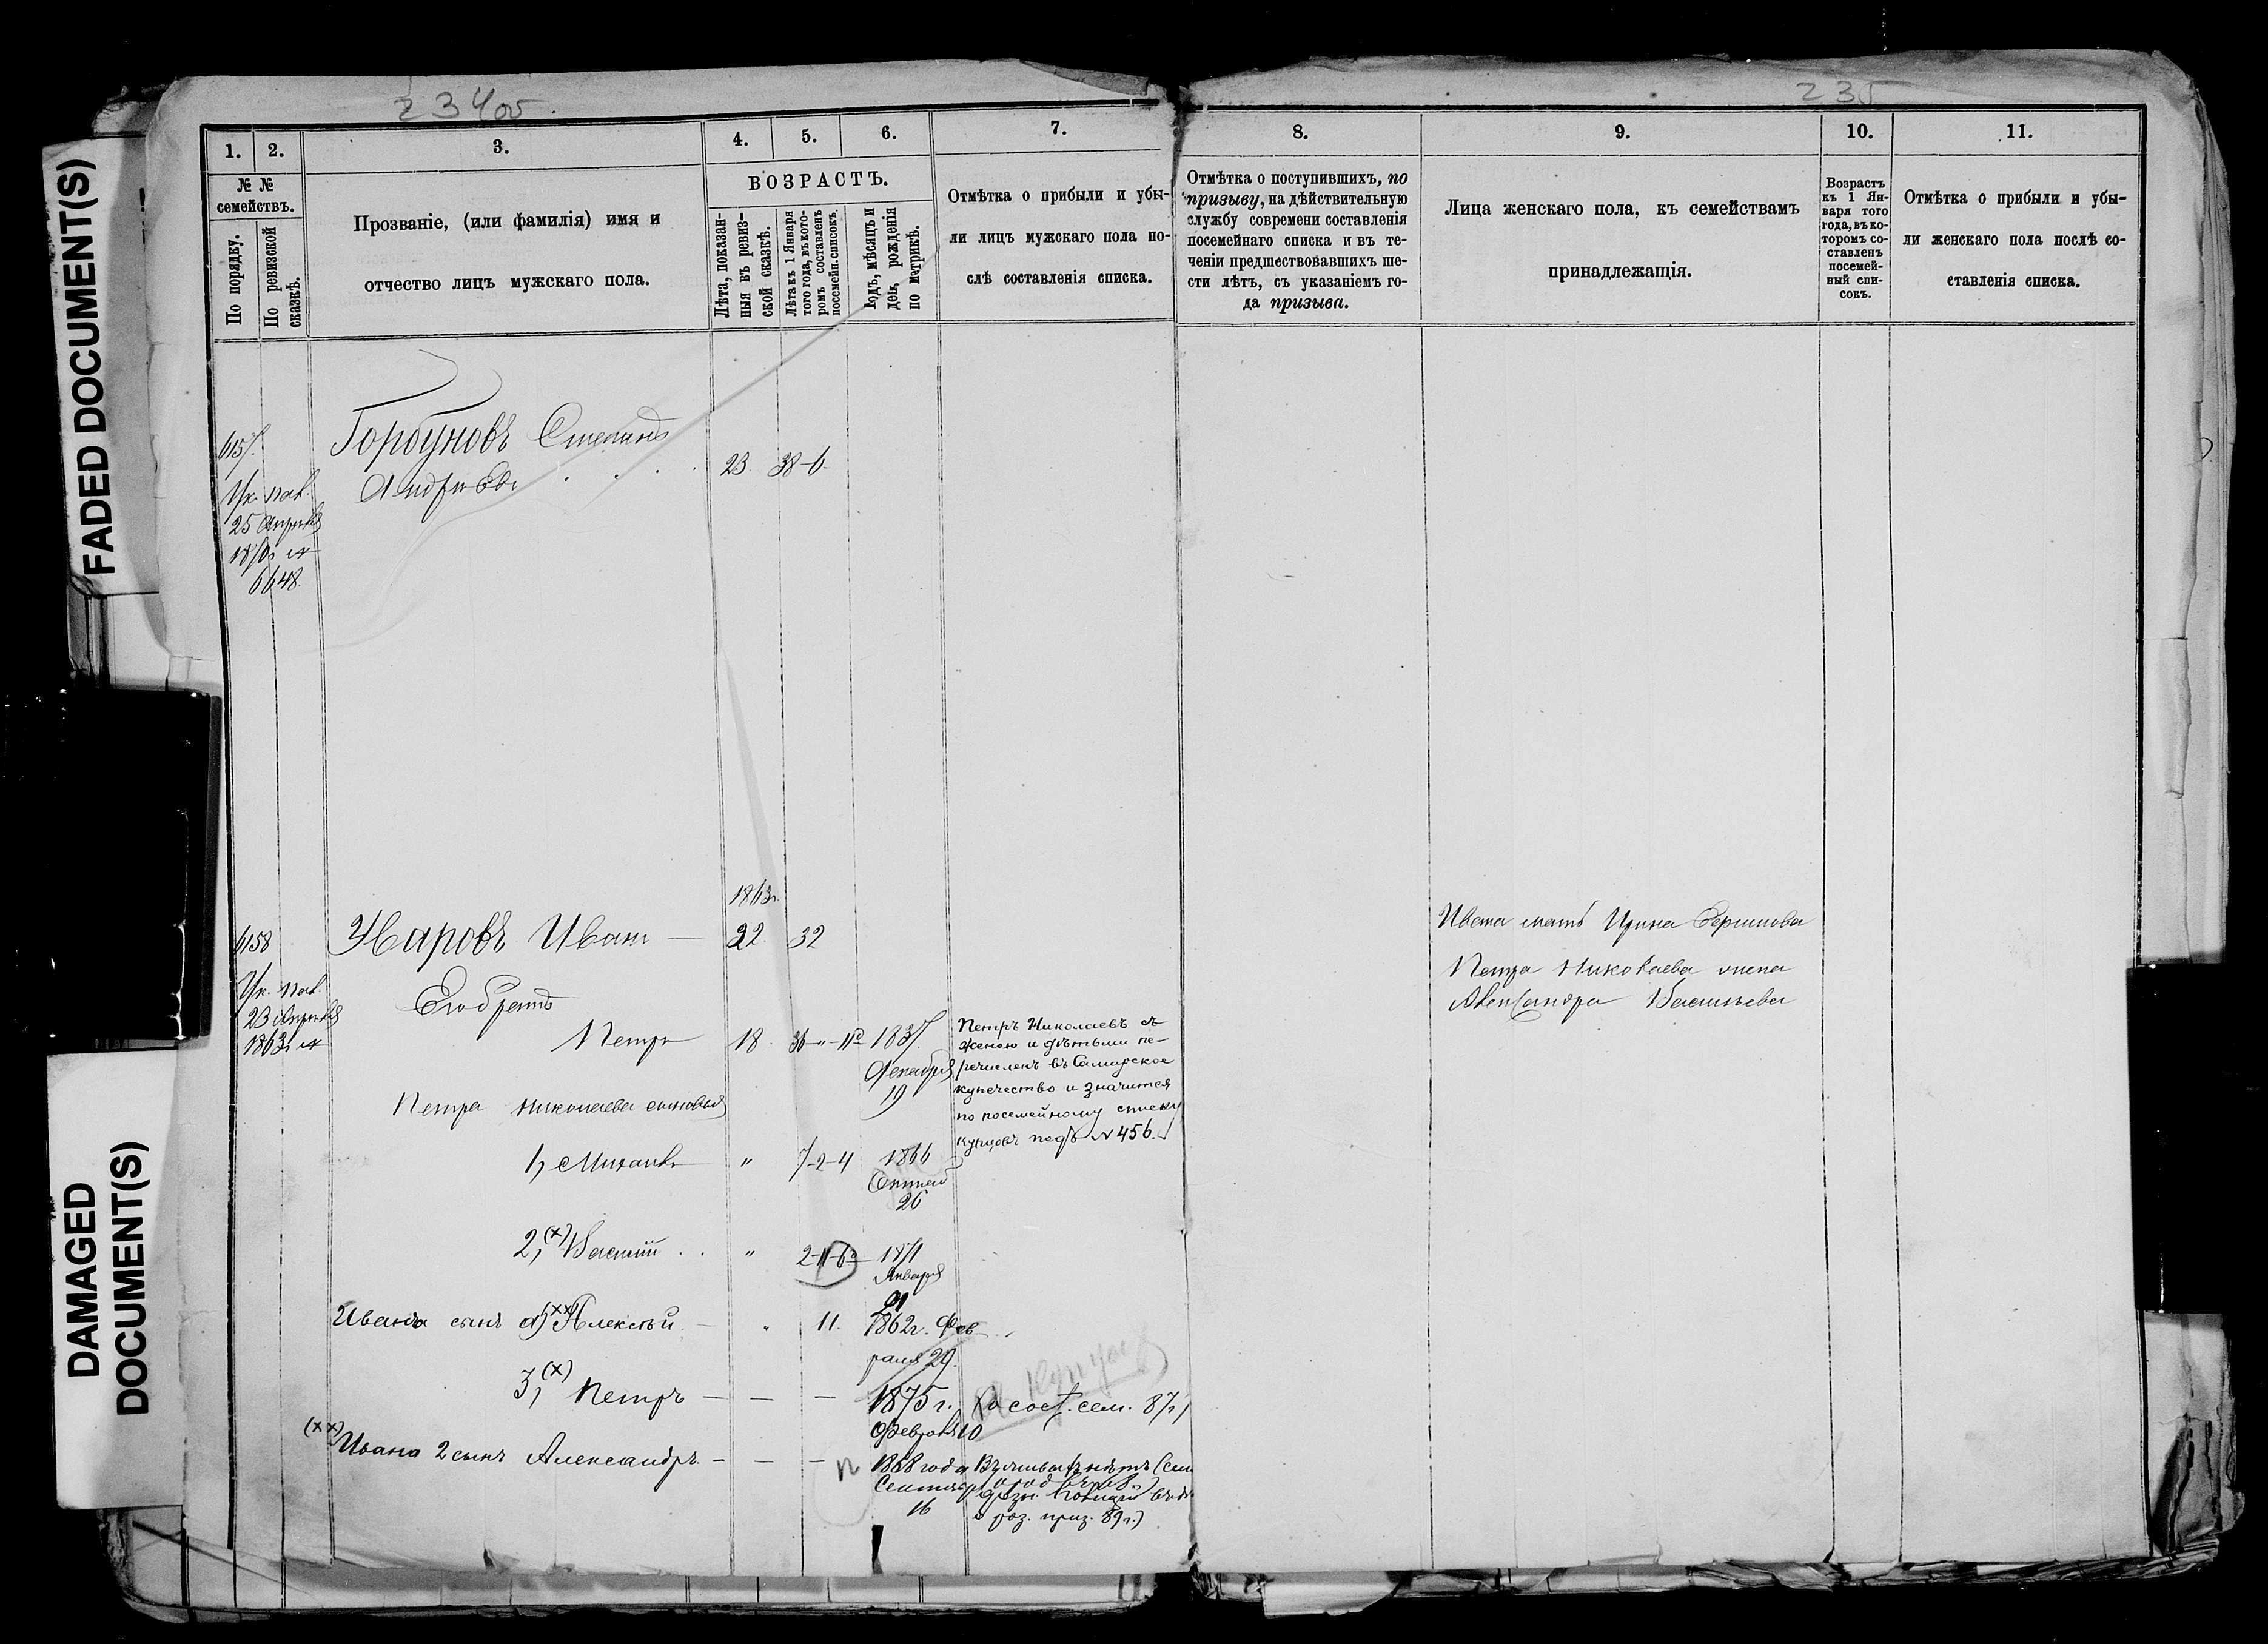 FADED DOCUMENT(S)
DAMAGED
DOCUMENT(S)
234об.
235
1.
2.
3.
4.
5.
6.
7.
8.
9.
10.
11.
№ №
семействъ.
По порядку.
По ревизской
сказкѣ.
Прозваніе, (или фамилія) имя и
отчество лицъ мужскаго пола.
ВОЗРАСТЪ.
Лѣта, показан-
ныя въ ревиз-
ской сказкѣ.
Лѣта къ 1 Января
того года, въ кото-
ромъ составленъ
посемейн. списокъ.
Годъ, мѣсяцъ и
день рожденія
по метрикѣ.
Отмѣтка о прибыли и убы-
ли лицъ мужскаго пола по-
слѣ составленія списка.
Отмѣтка о поступившихъ, по
призыву, на дѣйствительную
службу современи составленія
посемейнаго списка и въ те-
ченіи предшествовавшихъ ше-
сти лѣтъ, съ указаніемъ го-
да призыва.
Лица женскаго пола, къ семействамъ
принадлежащія.
Возрастъ
къ 1 Ян-
варя того
года, въ ко-
торомъ со-
ставленъ
посемей-
ный спи-
сокъ.
Отмѣтка о прибыли и убы-
ли женскаго пола послѣ со-
ставленія списка.
6157.
Горбуновъ Степанъ
Андреевъ
23
38-6
Ук. пал.
25 Апрѣля
6648.
1863г.
6158
Жаровъ Иван
22
32
Ивана мать Ирина
Ук. пал.
23 Апрѣля
1863г №
Его братъ
Петра Николаева жена
Александра Васильева
Петръ
18
36-"-11д
1837
Декабря
19
Петръ Николаевъ съ
женою и дѣтьми пе-
речисленъ въ Самарское
купечество и значится
по посемейному списку
купцовъ подъ №456.
Петра Николаева сыновья
1, Михаилъ
"
7-2-4
1866
Октяб
26
2, (х) Василій
"
2-11-6д
1871
Января
Ивана сынъ а) (хх) Алексѣй
"
11.
1862г. Фев
раля 29.
3, (х) Петръ
1875 г.
Февраля 10
сост. сем. 87
(хх) Ивана 2 сынъ Александръ
1868 года
Сентяб
16
приз. 89 г.)